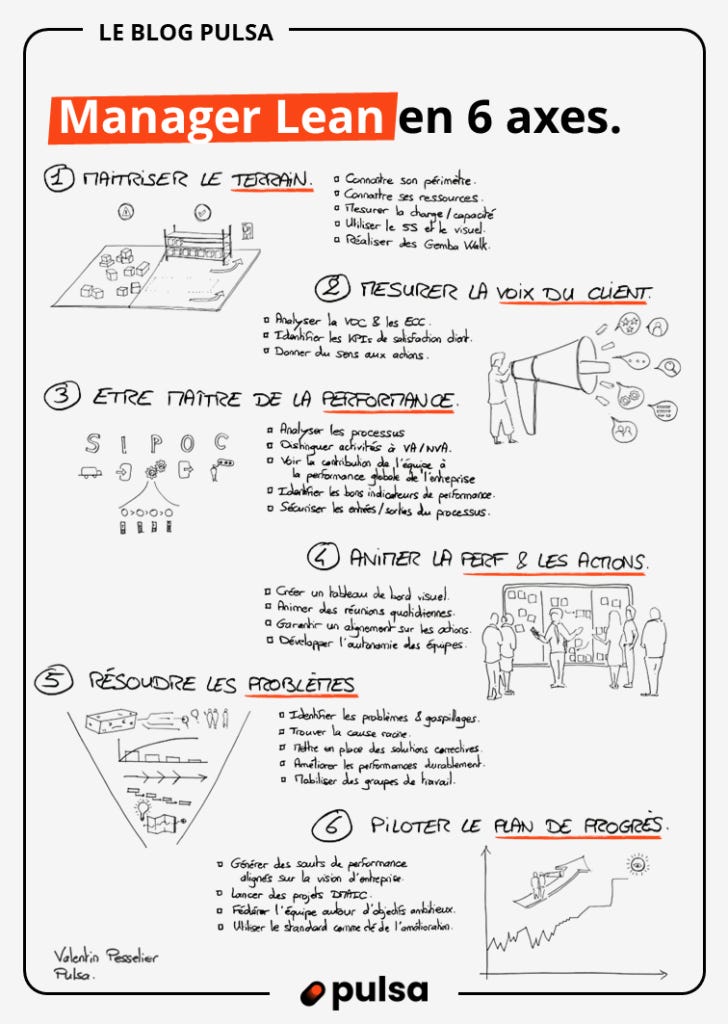 LE BLOG PULSA
Manager Lean en 6 axes.
1 MAITRISER LE TERRAIN.
Connaître son périmètre.
Connaître ses ressources.
Mesurer la charge/capacité
Utiliser le 5S et le visuel.
Réaliser des Gemba Walk.
2 MESURER LA VOIX DU CLIENT.
Analyser la VOC & les EOC.
Identifier les KPIs de satisfaction client.
Donner du sens aux actions.
3 ETRE MAÎTRE DE LA PERFORMANCE.
S I P O C
Analyser les processus
Distinguer activités à VA/NVA.
Voir la contribution de l'équipe à
la performance globale de l'entreprise
Identifier les bons indicateurs de performance.
Sécuriser les entrées/sorties du processus.
4 ANIMER LA PERF & LES ACTIONS.
Créer un tableau de bord visuel.
Animer des réunions quotidiennes.
Garantir un alignement sur les actions.
Développer l'autonomie des équipes.
5 RÉSOUDRE LES PROBLÈMES
Identifier les problèmes & gaspillages.
Trouver la cause racine.
Mettre en place des solutions correctives.
Améliorer les performances durablement.
Mobiliser des groupes de travail.
6 PILOTER LE PLAN DE PROGRÈS.
Générer des sauts de performance
alignés sur la vision d'entreprise.
Lancer des projets DMAIC.
Fédérer l'équipe autour d'objectifs ambitieux.
Utiliser le standard comme clé de l'amélioration.
Valentin Pesselier
Pulsa.
pulsa